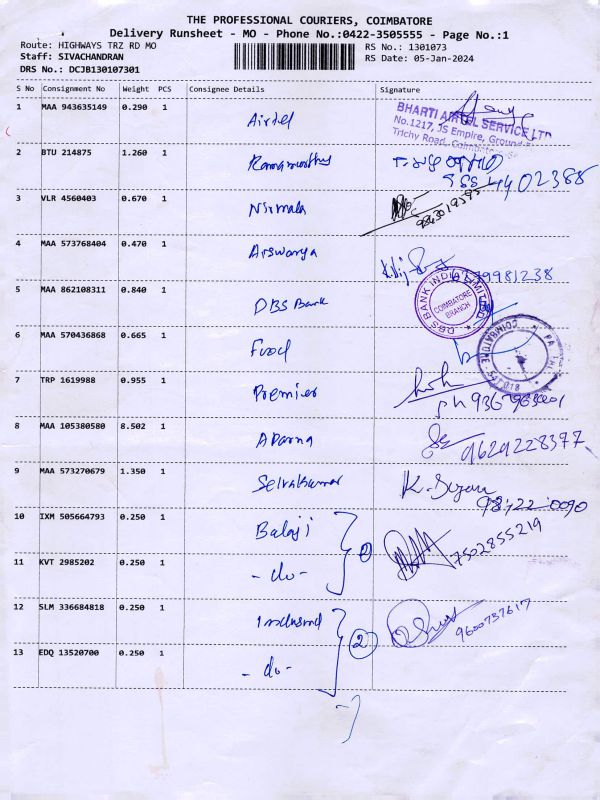 THE PROFESSIONAL COURIERS, COIMBATORE
Delivery Runsheet - MO - Phone No.:0422-3505555 - Page No.:1
Route: HIGHWAYS TRZ RD MO
RS No.: 1301073
Staff: SIVACHANDRAN
RS Date: 05-Jan-2024
DRS No.: DCJB130107301
S No Consignment No Weight PCS Consignee Details Signature
1 MAA 943635149 0.290 1 Airtel
BHARTI AIRTEL SERVICE LTD
No.1217, JS Empire, Ground
Trichy Road, Coimbatore
2 BTU 214875 1.260 1 Ramamoorthy
3 VLR 4560403 0.670 1 Nirmala
4 MAA 573768404 0.470 1
5 MAA 862108311 0.840 1 DBS Bank
DBS BANK INDIA LIMITED
COIMBATORE
BRANCH
6 MAA 570436868 0.665 1
COIMBATORE
7 TRP 1619988 0.955 1 Premier
ph
8 MAA 105380580 8.502 1 Aparna
9629228377
9 MAA 573270679 1.350 1 Selvakumar
98422 0090
10 IXM 505664793 0.250 1 Balaji
2
7502855219
11 KVT 2985202 0.250 1 - do -
12 SLM 336684818 0.250 1 Indusind
2
9600737617
13 EDQ 13520700 0.250 1 - do -